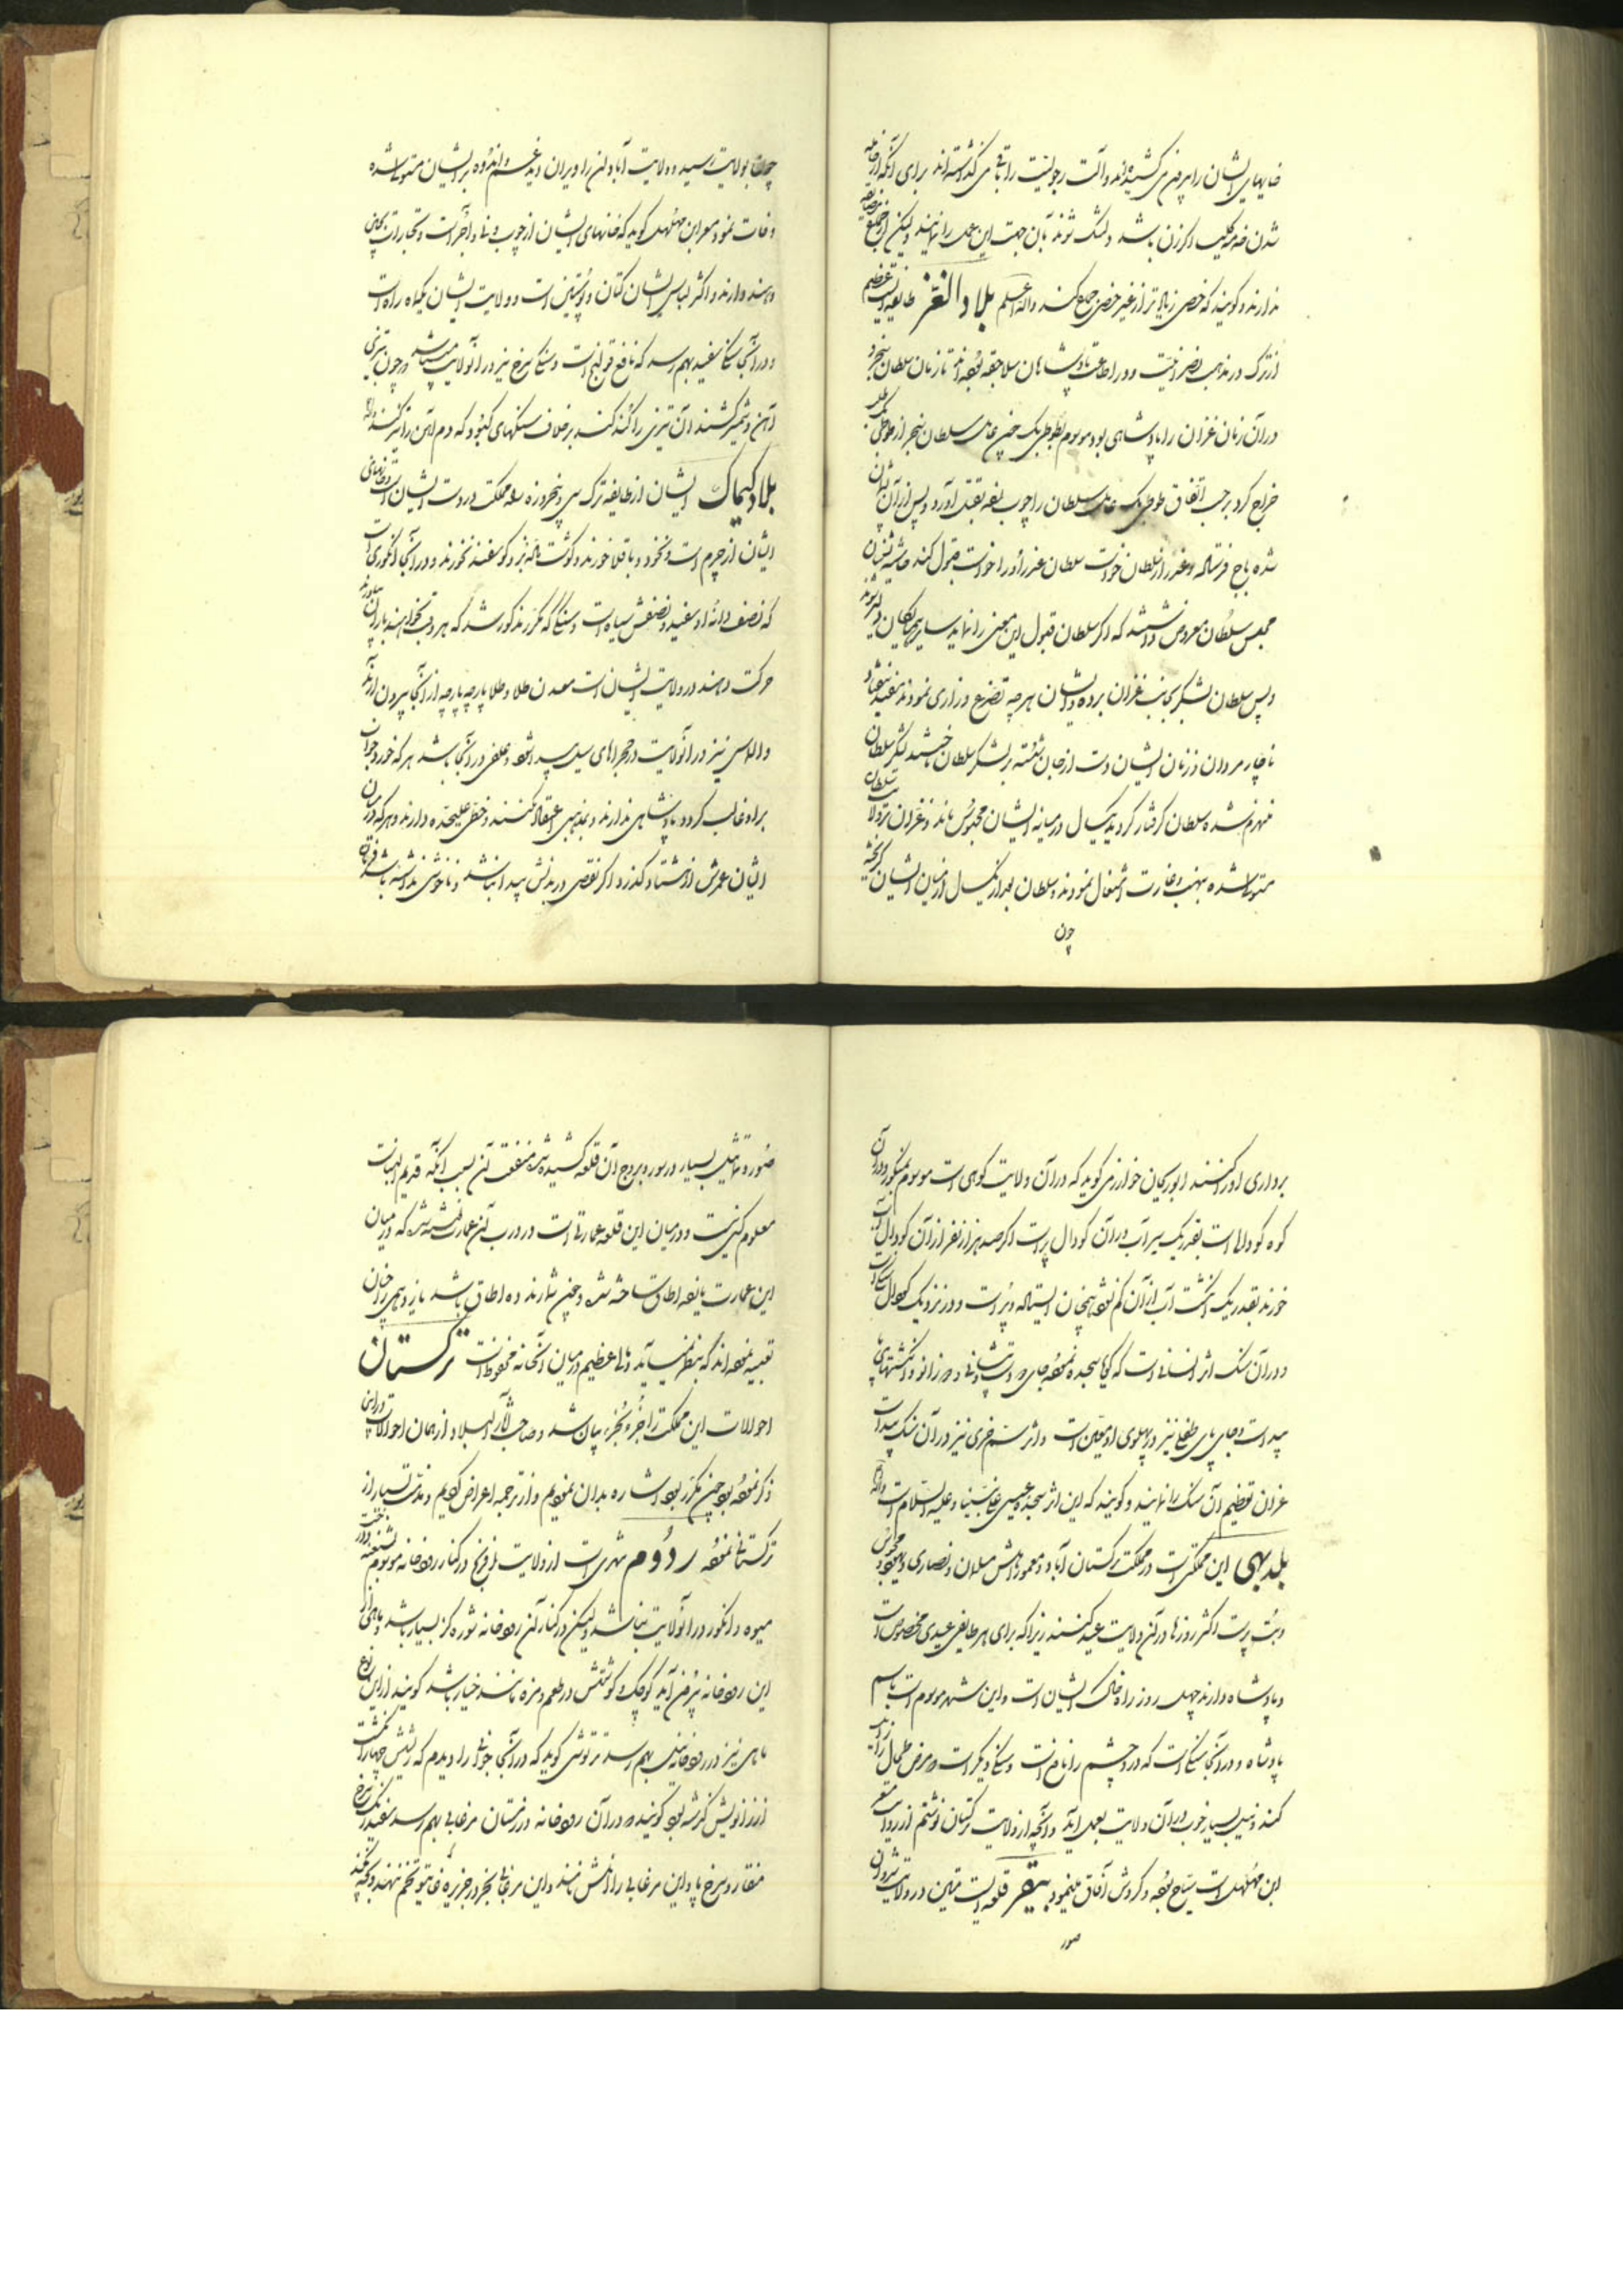 خایهای ایشان را بیرون می کشیده اند و آلت رجولیت را باقی می گذاشته اند برای آنکه از
شدن ضرر کلیت اگر زن باشد دلتنگ شوند بآن جهت این عمل را نمایند ولیکن از جمع
ندارند و گویند که خصی زیاده تر از غیر خصی جمع کند والله اعلم بلاد الغز طایفه ایست عظیم
از ترک در مذهب نصرانیت و در اطاعت پادشاهان سلاجقه بوده اند تا زمان سلطان سنجر و
در آن زمان غزان را پادشاهی بود موسوم بطوطی بک چون عامل سلطان سنجر از طوطی بک
خراج کرد بر حسب اتفاق طوطی بک عامل سلطان را چوب بقتل آورد و پس از آن
شده باج فرستاده و عذر از سلطان خواست سلطان عذر او را خواست قبول کند حاشیه نشینان
مجلس سلطان معروض داشتند که اگر سلطان قبول این معنی را نماید سایر دلیر شوند
و پس سلطان لشکر بجانب غزان برده و ایشان هر چه تضرع و زاری نمودند مفید نیفتاد
ناچار مردان و زنان ایشان دست از جان شسته بر لشکر سلطان تاختند لشکر سلطان
منهزم شده سلطان گرفتار گردید یکسال در میانه ایشان محبوس ماند و غزان بر ولایت سلطان
مستولی شده بنهب و غارت اشتغال نمودند و سلطان بعد از یکسال از میان ایشان گریخته
چون
چون بولایت رسید و ولایت آبادان را ویران دید غم و اندوه بر ایشان مستولی شده
وفات نمود مسعر ابن مهلهل گوید که خانهای ایشان از چوب و نی و آجر است و تجارات بچین
و هند دارند و اکثر لباس ایشان کتان و پوستین است و ولایت ایشان یکماه راه است
و در آنجا سنگ سفید بهم رسد که نافع قولنج است و سنگ سرخ نیز در آنولایت میباشد و چون بر تیزی
آهن و شمشیر کشند آن تیزی را کند کند بر خلاف سنگهای کبود که دم آهن را تیز کند والله
بلاد کیماک ایشان از طایفه ترک سی و پنجروزه راه مملکت در دست ایشان است و خانهای
ایشان از چرم است و نخود و باقلا خورند و گوشت ماده بز و گوسفند نخورند و در آنجا انگوری است
که نصف دانه او سفید و نصفش سیاه است و سنگی که مکرر مذکور شد که هر وقت خواهند باران بیاورند
حرکت دهند در ولایت ایشان است معدن طلا و طلا پارچه پارچه از آنجا بیرون آرند
و الماس نیز در آنولایت در مجراهای سیل پیدا شود و علفی در آنجا باشد هر که خورد خواب
بر او غالب گردد پادشاهی ندارند و بمذهبی اعتقاد نکنند و خطی علیحده دارند و هر که در میان
ایشان عمرش از هشتاد گذرد اگر نقصی در بدنش پیدا نباشد و ناخوشی نداشته باشد
برداری او را کنند ابو ریحان خوارزمی گوید که در آن ولایت کوهی است موسوم بمنکور و در آن
کوه گودالها است بقدر یک سپر آب در آن گودال پر است اگر صد هزار نفر از آن گودال آب
خورند بقدر یک انگشت آب از آن کم نشود همچنان ایستاده و پر است و در نزدیک گودال سنگی است
و در آن سنگ اثر انسانی است که گویا سجده نموده جای دو دست و پیشانی و دو زانو و انگشتهای پا
پیداست و جای پای طفلی نیز در پهلوی او معین است و اثر سم خری نیز در آن سنگ پیداست
غزان تعظیم آن سنگ را نمایند و گویند که این اثر سجده عیسی علی نبینا و علیه السلام است والله اعلم
بلد بهی این مملکتی است در مملکت ترکستان آباد و معمور اهلش مسلمان و نصاری و یهود و مجوس
و بت پرست اکثر روزها در آن ولایت عید کنند زیرا که برای هر طایفه عیدی مخصوص است
و پادشاه دارند چهل روز راه خاک ایشان است و این شهر موسوم است باسم
پادشاه و در آنجا سنگی است که درد چشم را نافع است و سنگی دیگر است که مرض طحال را زایل
کند و نیل بسیار خوب در آن ولایت بعمل آید و آنچه از ولایت ترکستان نوشتم از روایت مسعر
ابن مهلهل است سیاح بوده و گردش آفاق مینمود بیقر قلعه ایست متین در ولایت شروان
صور
صور و تماثیل بسیار در سور و بروج آن قلعه کشیده شده منفعت آن بسبب آنکه قدیم البنا است
معلوم کسی نیست و در میان این قلعه عمارتی است در درب آن عمارت نوشته شده که در میان
این عمارت یازده اطاق ساخته شده و چون شمارند ده اطاق باشد یازدهمی را چنان
تعبیه نموده اند که بنظر نمیآید و مالی عظیم در میان آنخانه محفوظ است ترکستان
احوالات این مملکت را جزء بجزء بیان شد و صاحب آثار البلاد از همان احوالات در این
ذکر نموده بود چون مکرر بود اشاره بدان نمودیم و از ترجمه اعراض کردیم و مذمت بسیار از
ترکستان نموده ردوم شهری است از ولایت افرنج در کنار رودخانه موسوم بشعنه و درخت
میوه و انگور در آنولایت نباشد ولیکن در کنار آن رودخانه شوره گز بسیار باشد و ماهی از
این رودخانه بیرون آید کوچک و گوشتش در طعم و مزه مانند خیار باشد گویند از این نوع
ماهی نیز در رودخانه نیل بهم رسد طرطوشی گوید که در آنجا جوانی را دیدم که ریشش چهار انگشت
از زانویش گذشته بود گویند در آن رودخانه در زمستان مرغابی بهم رسد سفید رنگ و سرخ
منقار و سرخ پا و این مرغابی را غش نامند و این مرغابی بجز در جزیره تخم ننهد و بچه نکند